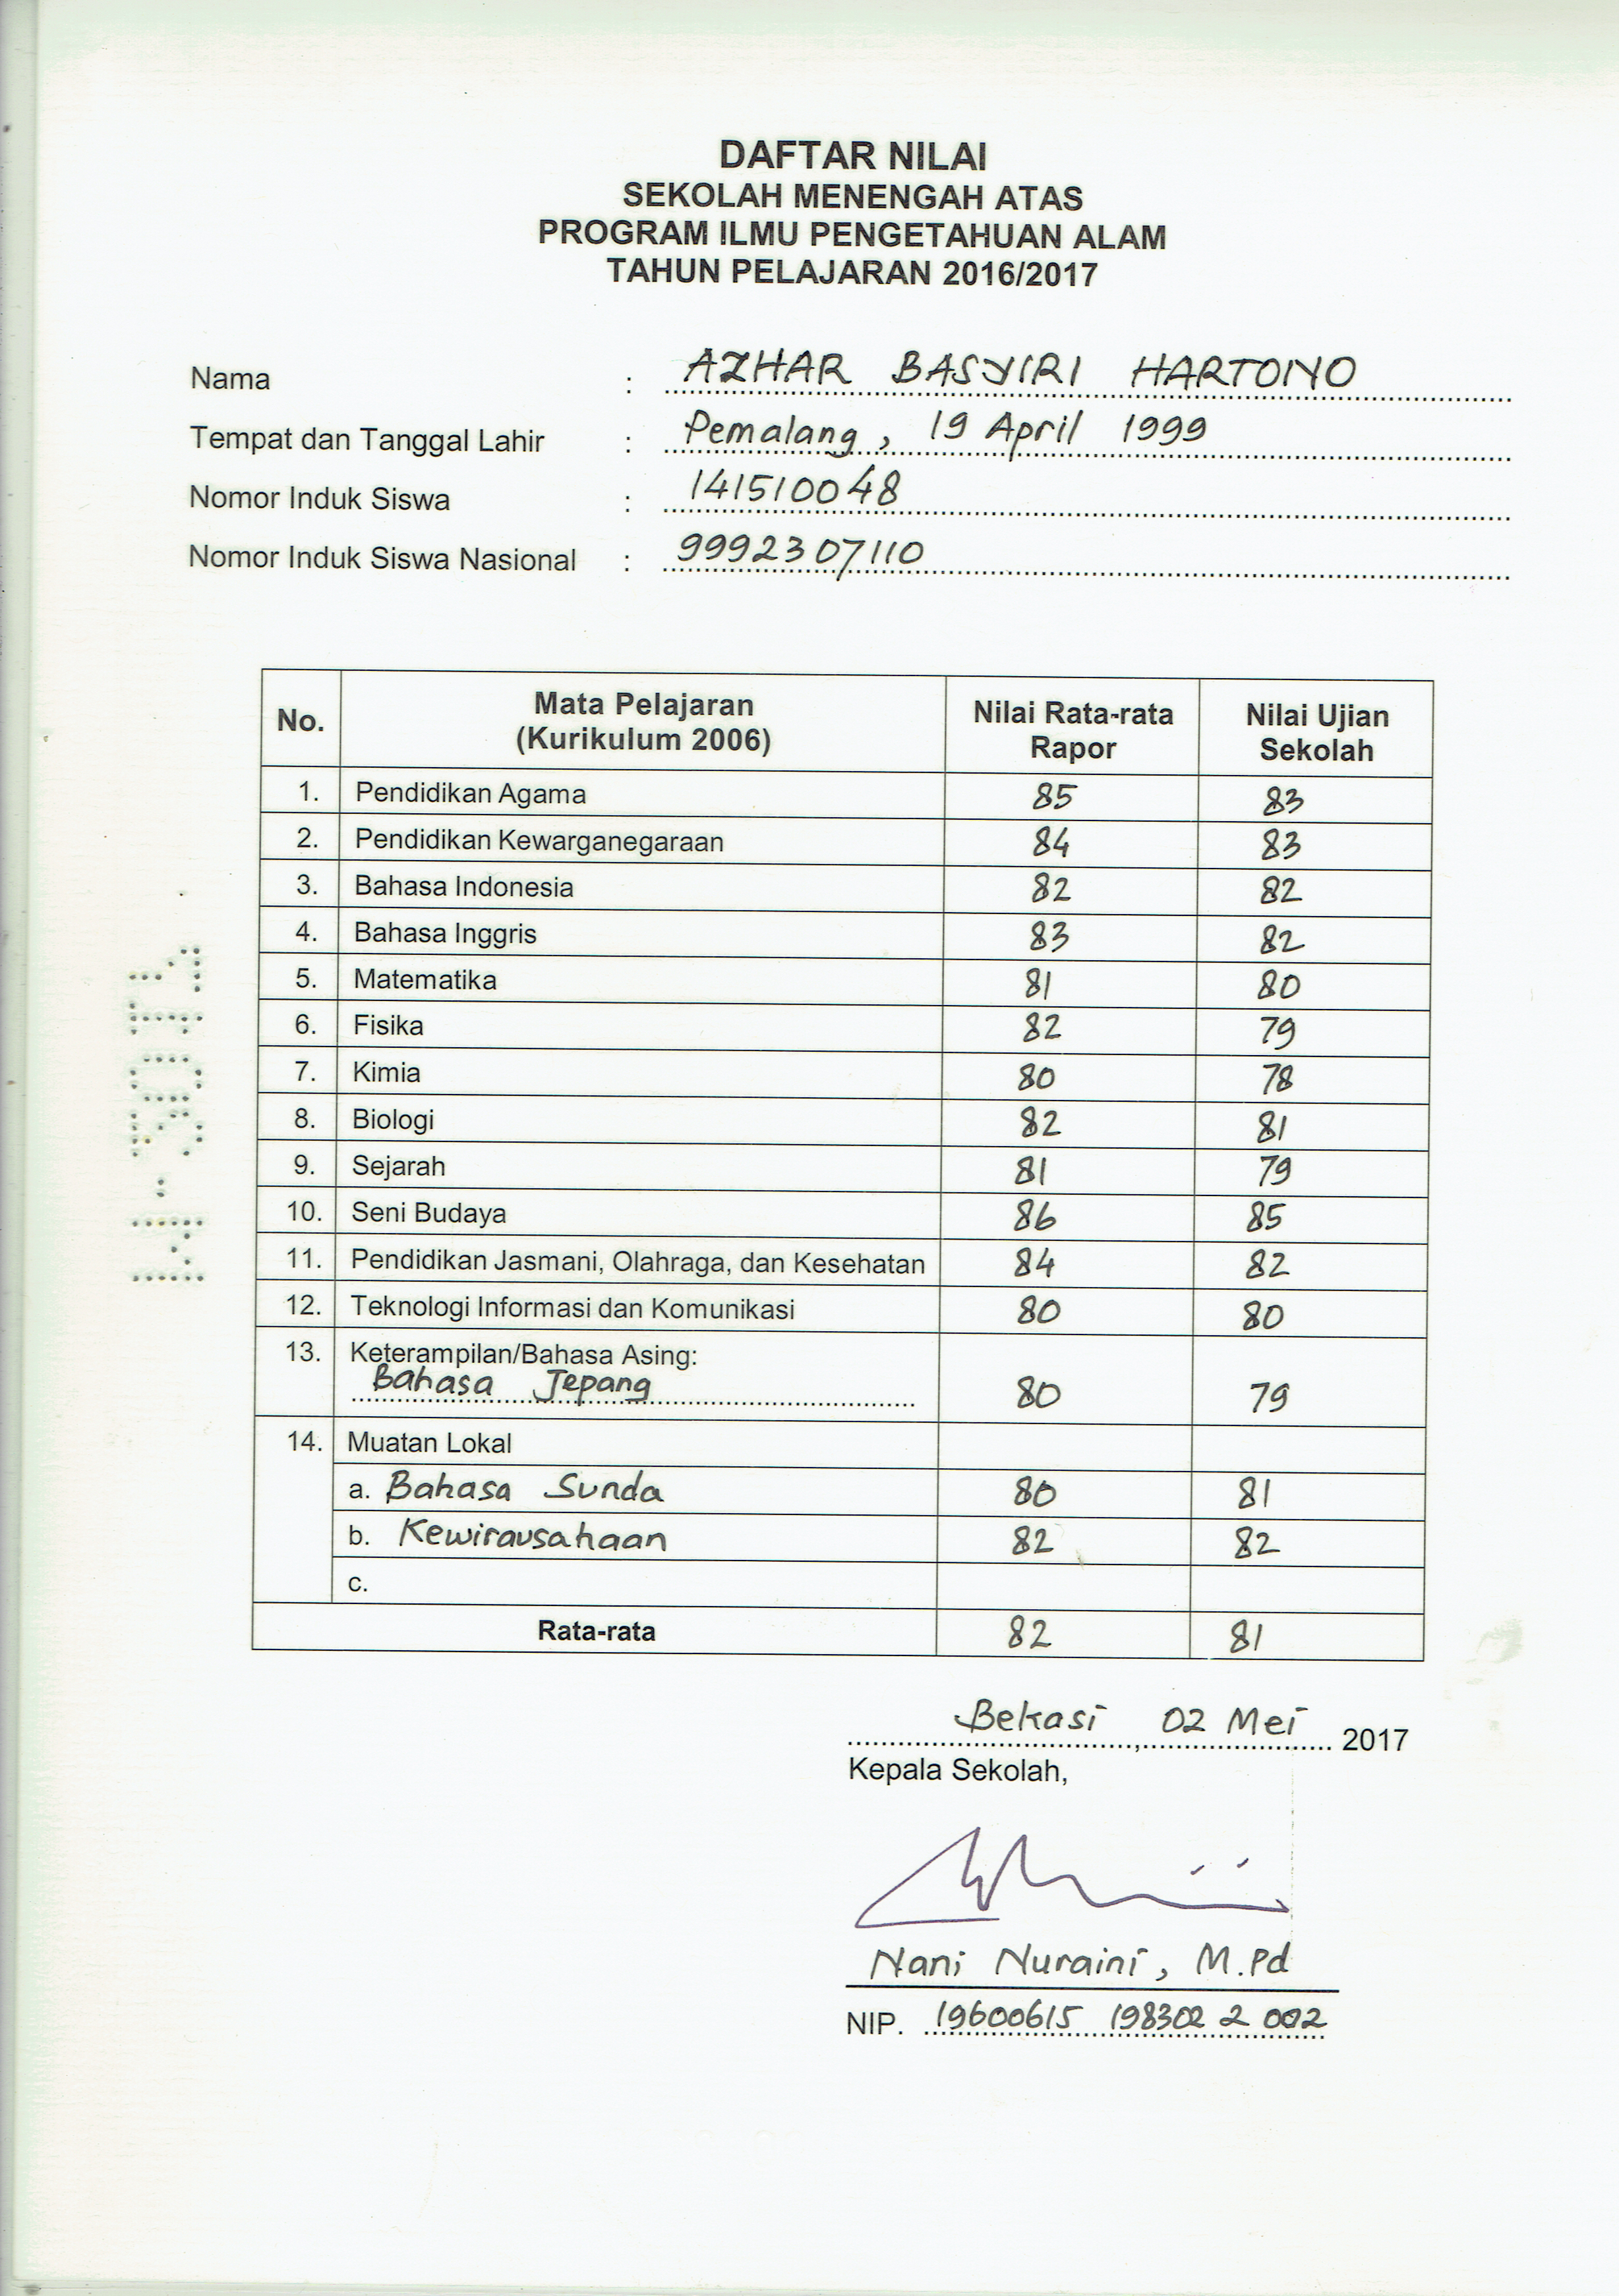 DAFTAR NILAI
SEKOLAH MENENGAH ATAS
PROGRAM ILMU PENGETAHUAN ALAM
TAHUN PELAJARAN 2016/2017
Nama : AZHAR BASYIRI HARTONO
Tempat dan Tanggal Lahir : Pemalang, 19 April 1999
Nomor Induk Siswa : 141510048
Nomor Induk Siswa Nasional : 9992307110
No. Mata Pelajaran (Kurikulum 2006) Nilai Rata-rata Rapor Nilai Ujian Sekolah
1. Pendidikan Agama 85 83
2. Pendidikan Kewarganegaraan 84 83
3. Bahasa Indonesia 82 82
4. Bahasa Inggris 83 82
5. Matematika 81 80
6. Fisika 82 79
7. Kimia 80 78
8. Biologi 82 81
9. Sejarah 81 79
10. Seni Budaya 86 85
11. Pendidikan Jasmani, Olahraga, dan Kesehatan 84 82
12. Teknologi Informasi dan Komunikasi 80 80
13. Keterampilan/Bahasa Asing:
Bahasa Jepang 80 79
14. Muatan Lokal
a. Bahasa Sunda 80 81
b. Kewirausahaan 82 82
c.
Rata-rata 82 81
Bekasi, 02 Mei 2017
Kepala Sekolah,
Nani Nuraini, M.Pd
NIP. 19600615 198302 2 002